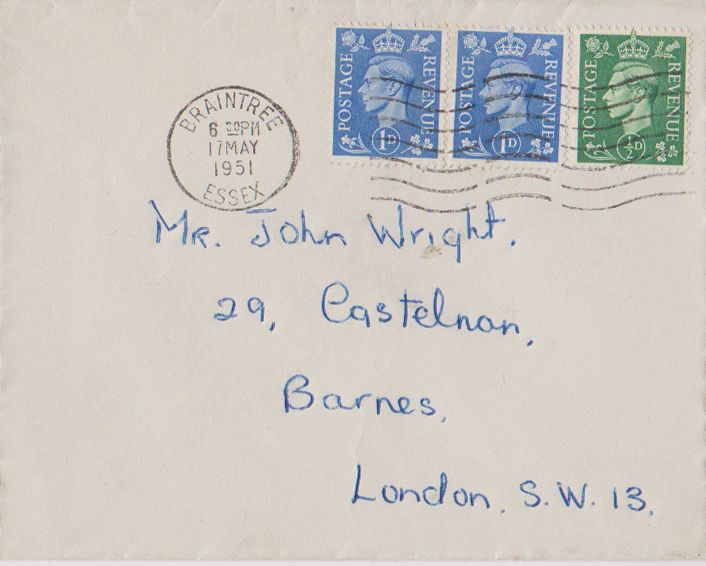 POSTAGE REVENUE 1D
POSTAGE REVENUE 1D
POSTAGE REVENUE ½D
BRAINTREE
6 30PM
17 MAY
1951
ESSEX
Mr. John Wright.
29, Castelnan,
Barnes,
London, S.W. 13.